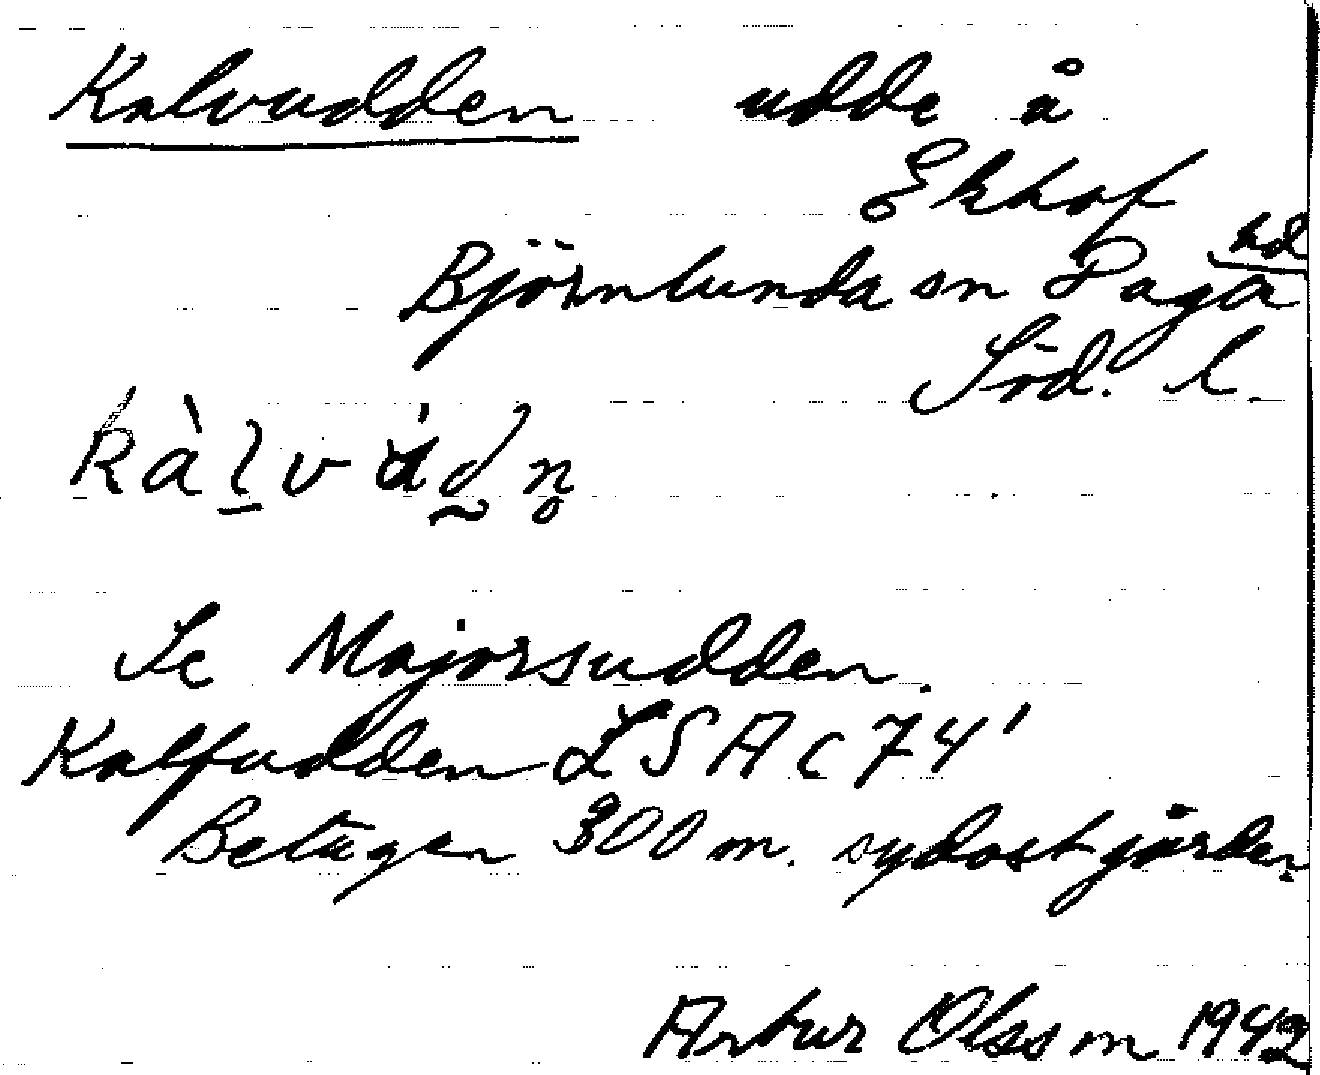 Kalvudden udde å
Ekhof
Björnlunda sn Daga hd
Söd. l.
Se Majorsudden.
Kalfudden LSA C74'
Betäger 300 m. sydost gården
Artur Olsson 1942